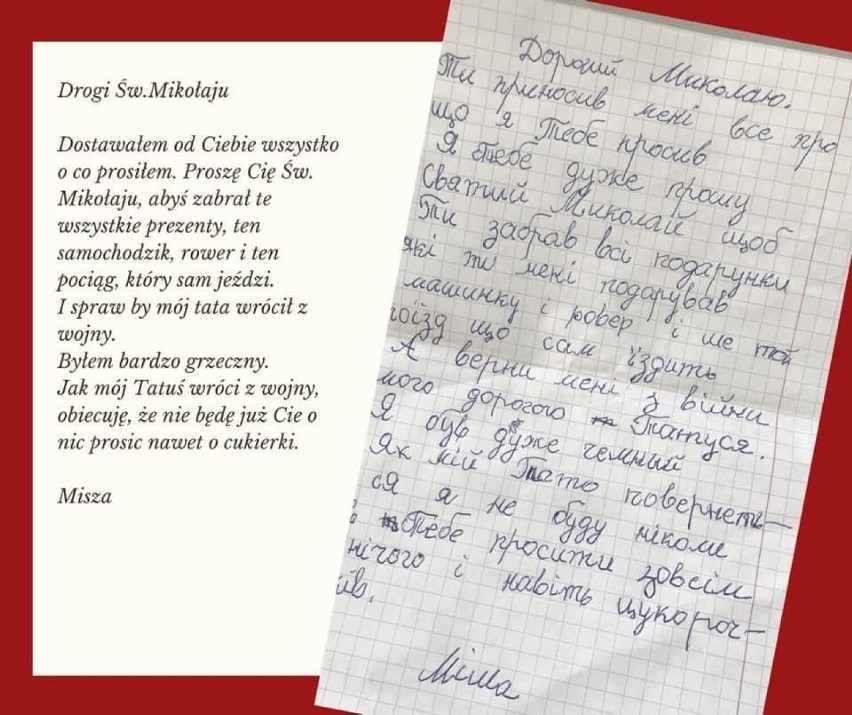 Drogi Św.Mikołaju
Dostawałem od Ciebie wszystko
o co prosiłem. Proszę Cię Św.
Mikołaju, abyś zabrał te
wszystkie prezenty, ten
samochodzik, rower i ten
pociąg, który sam jeździ.
I spraw by mój tata wrócił z
wojny.
Byłem bardzo grzeczny.
Jak mój Tatuś wróci z wojny,
obiecuję, że nie będę już Cie o
nic prosic nawet o cukierki.
Misza
Дорогий Миколаю.
Ти приносив мені все про
що я Тебе просив
Я Тебе дуже прошу
Святий Миколай щоб
Ти забрав всі подарунки
які ти мені подарував
машинку і ровер і ше той
поїзд що сам їздить
А верни мені з війни
мого дорогого Татуся.
Я був дуже чемный
Як мій Тато повернеть-
ся я не буду ніколи
Тебе просити зовсім
нічого і навіть цукороч-
ків.
Міша